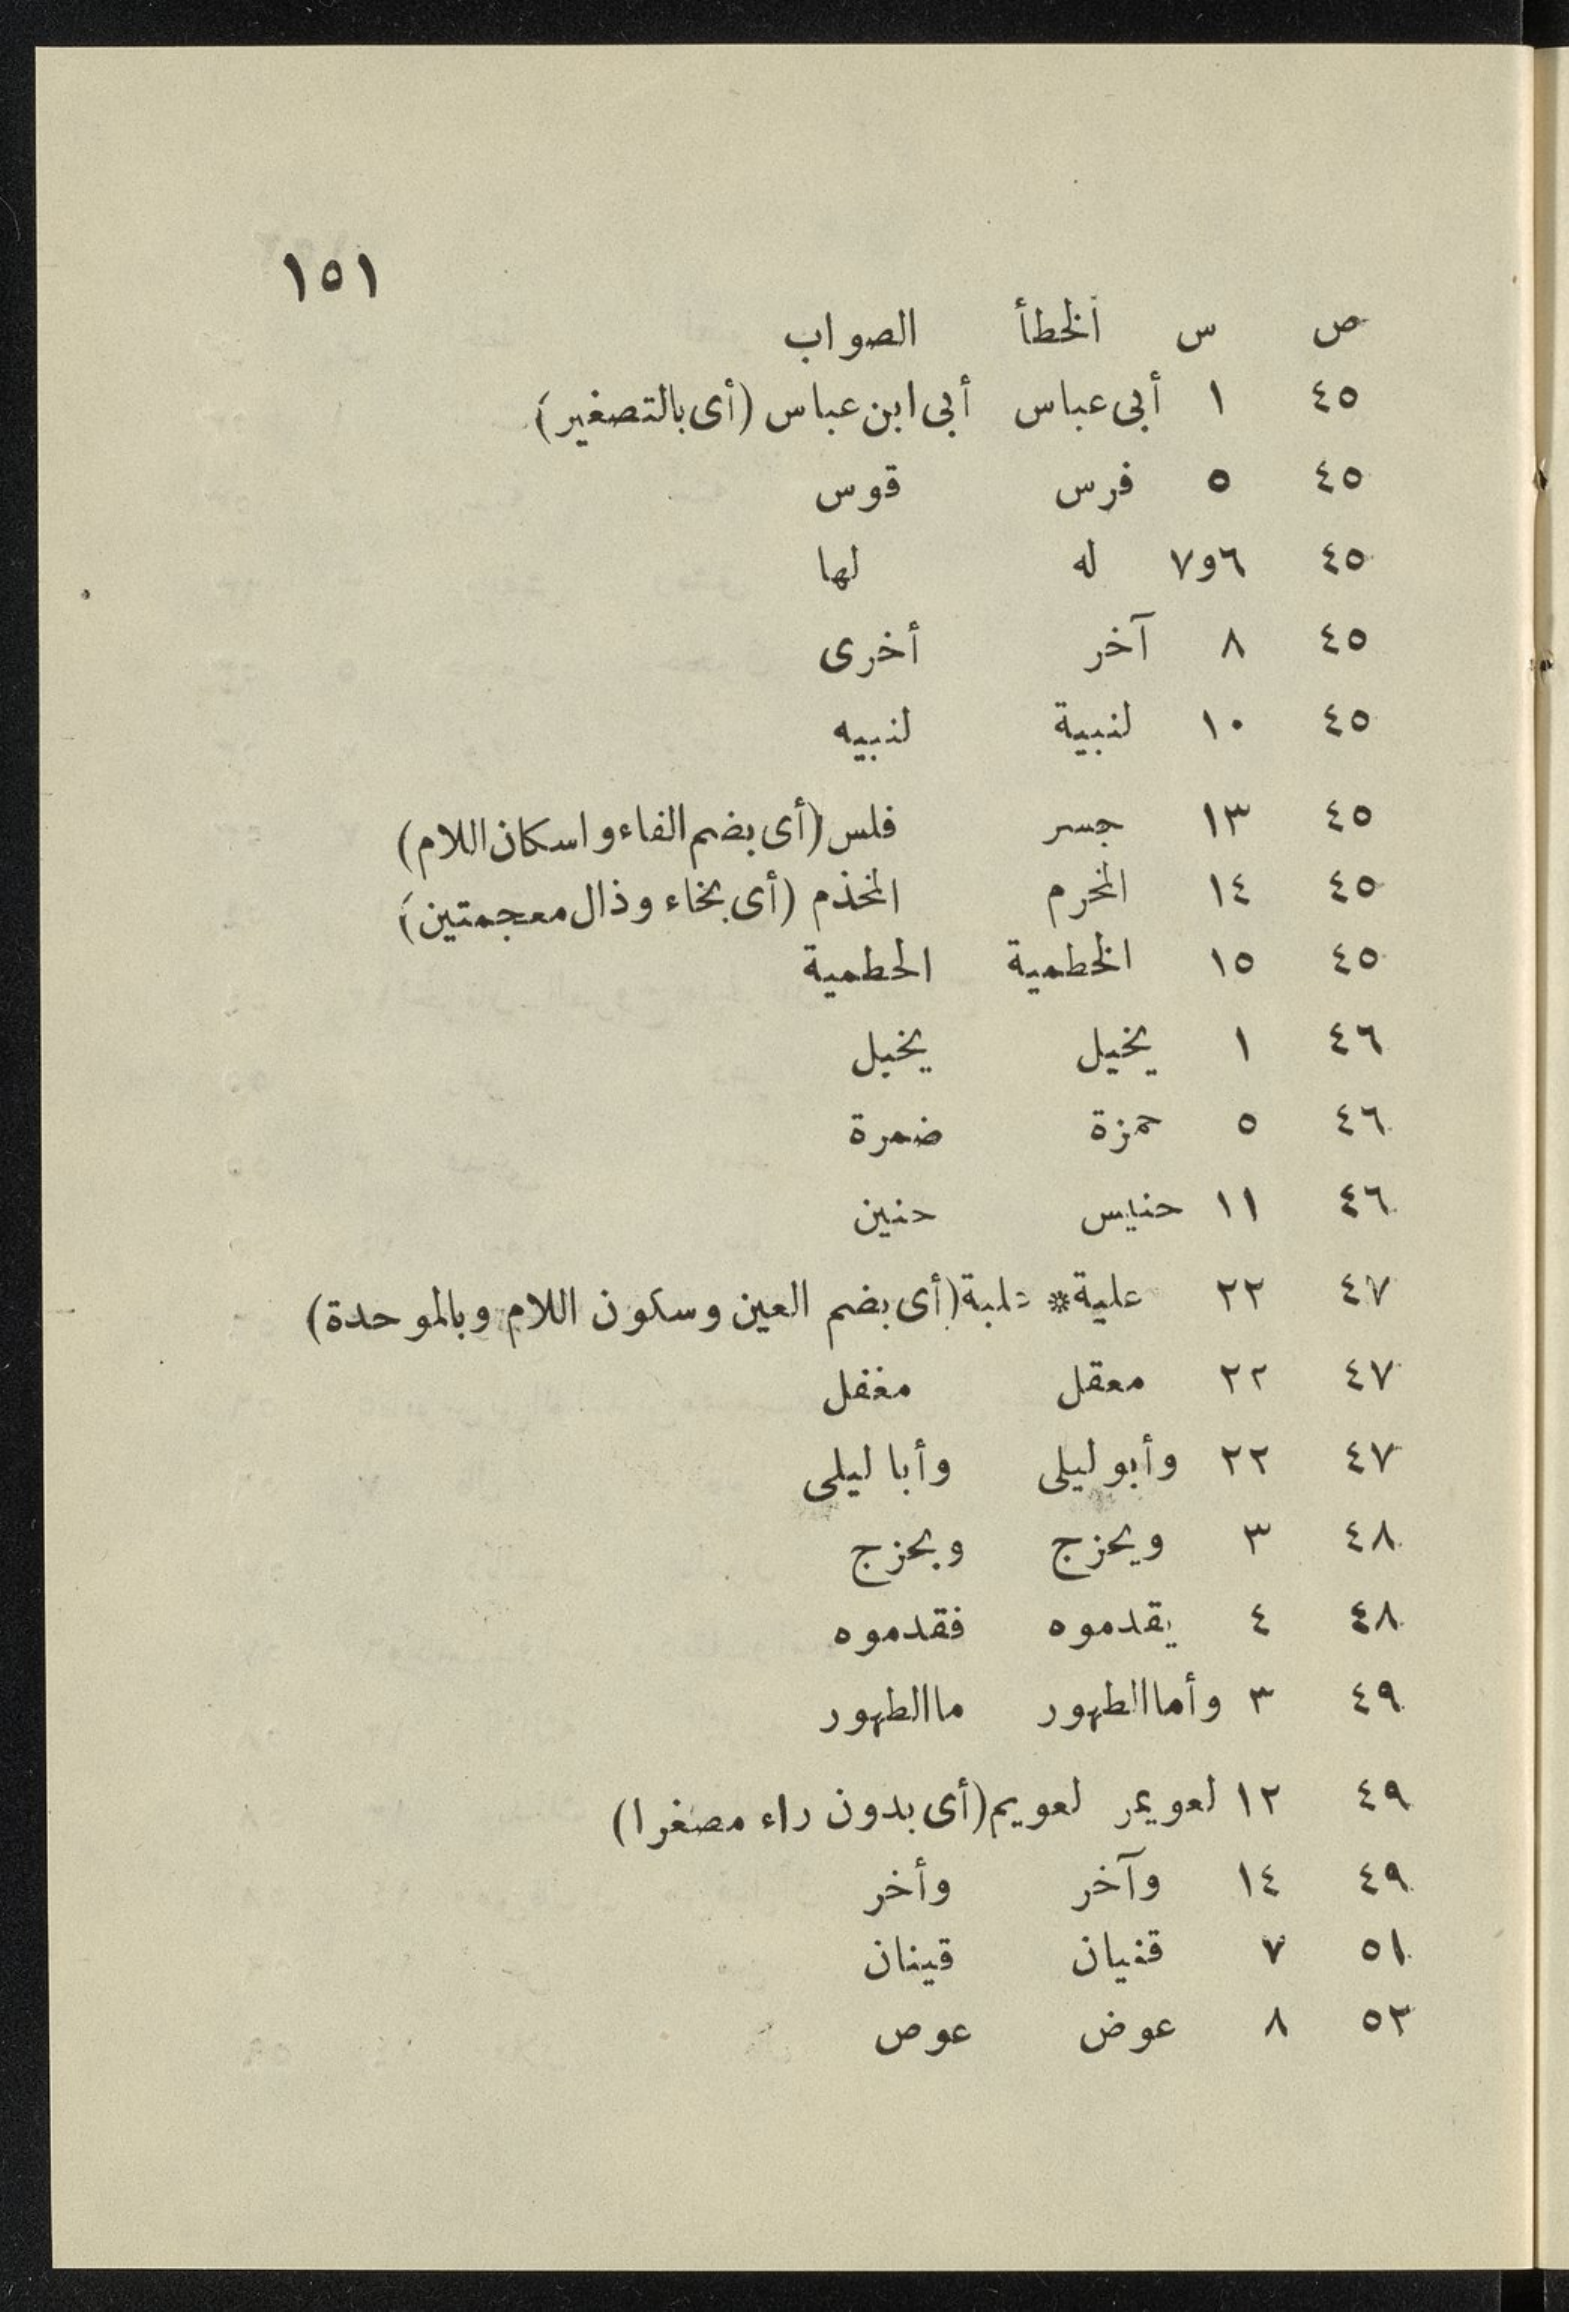 ١٥١
ص س الخطأ الصواب
٤٥ ١ أبى عباس أبى ابن عباس (أى بالتصغير)
٤٥ ٥ فرس قوس
٤٥ ٦و٧ له لها
٤٥ ٨ آخر أخرى
٤٥ ١٠ لنبية لنبيه
٤٥ ١٣ جسر فلس (أى بضم الفاء واسكان اللام)
٤٥ ١٤ المخرم المخذم (أى بخاء وذال معجمتين)
٤٥ ١٥ الخطمية الحطمية
٤٦ ١ يخيل يخبل
٤٦ ٥ حمزة ضمرة
٤٦ ١١ حنيس حنين
٤٧ ٢٢ علية * علبة (أى بضم العين وسكون اللام وبالموحدة)
٤٧ ٢٢ معقل مغفل
٤٧ ٢٢ وأبو ليلى وأبا ليلى
٤٨ ٣ ويحزج وبحزج
٤٨ ٤ يقدموه فقدموه
٤٩ ٣ وأما الطهور ما الطهور
٤٩ ١٢ لعويمر لعويم (أى بدون راء مصغرا)
٤٩ ١٤ وآخر وأخر
٥١ ٧ قنيان قينان
٥٢ ٨ عوض عوص